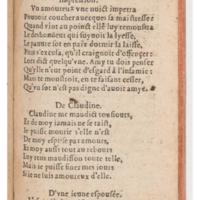 Vn amoureux vne nuict impetra
Pouuoir coucher auecques sa maistresse:
Quand vint au point elle luy remonstra
Le deshonneur qui suyuoit la lyesse,
Le pauure sot en paix dormir la laisse,
Plus n'excusa, qu'il craignoit d'offencer:
Lors dict quelqu'vne, Amy tu dois penser
Qu'vn point d'esgard à l'infamie:
Mais te monstroit, en te faisant cesser,
Qu'vn sot n'est pas digne d'auoir amye.
De Claudine.
Claudine me maudict tousiours,
Et de moy iamais ne se taist,
Ie puisse mourir s'elle n'est
De moy esprise par amours,
Et moy aussi tout au rebours
Luy tens maudisson toute telle,
Mais ie puisse finer mes iours,
Si ie ne suis amoureux d'elle.
D'vne ieune espousée.